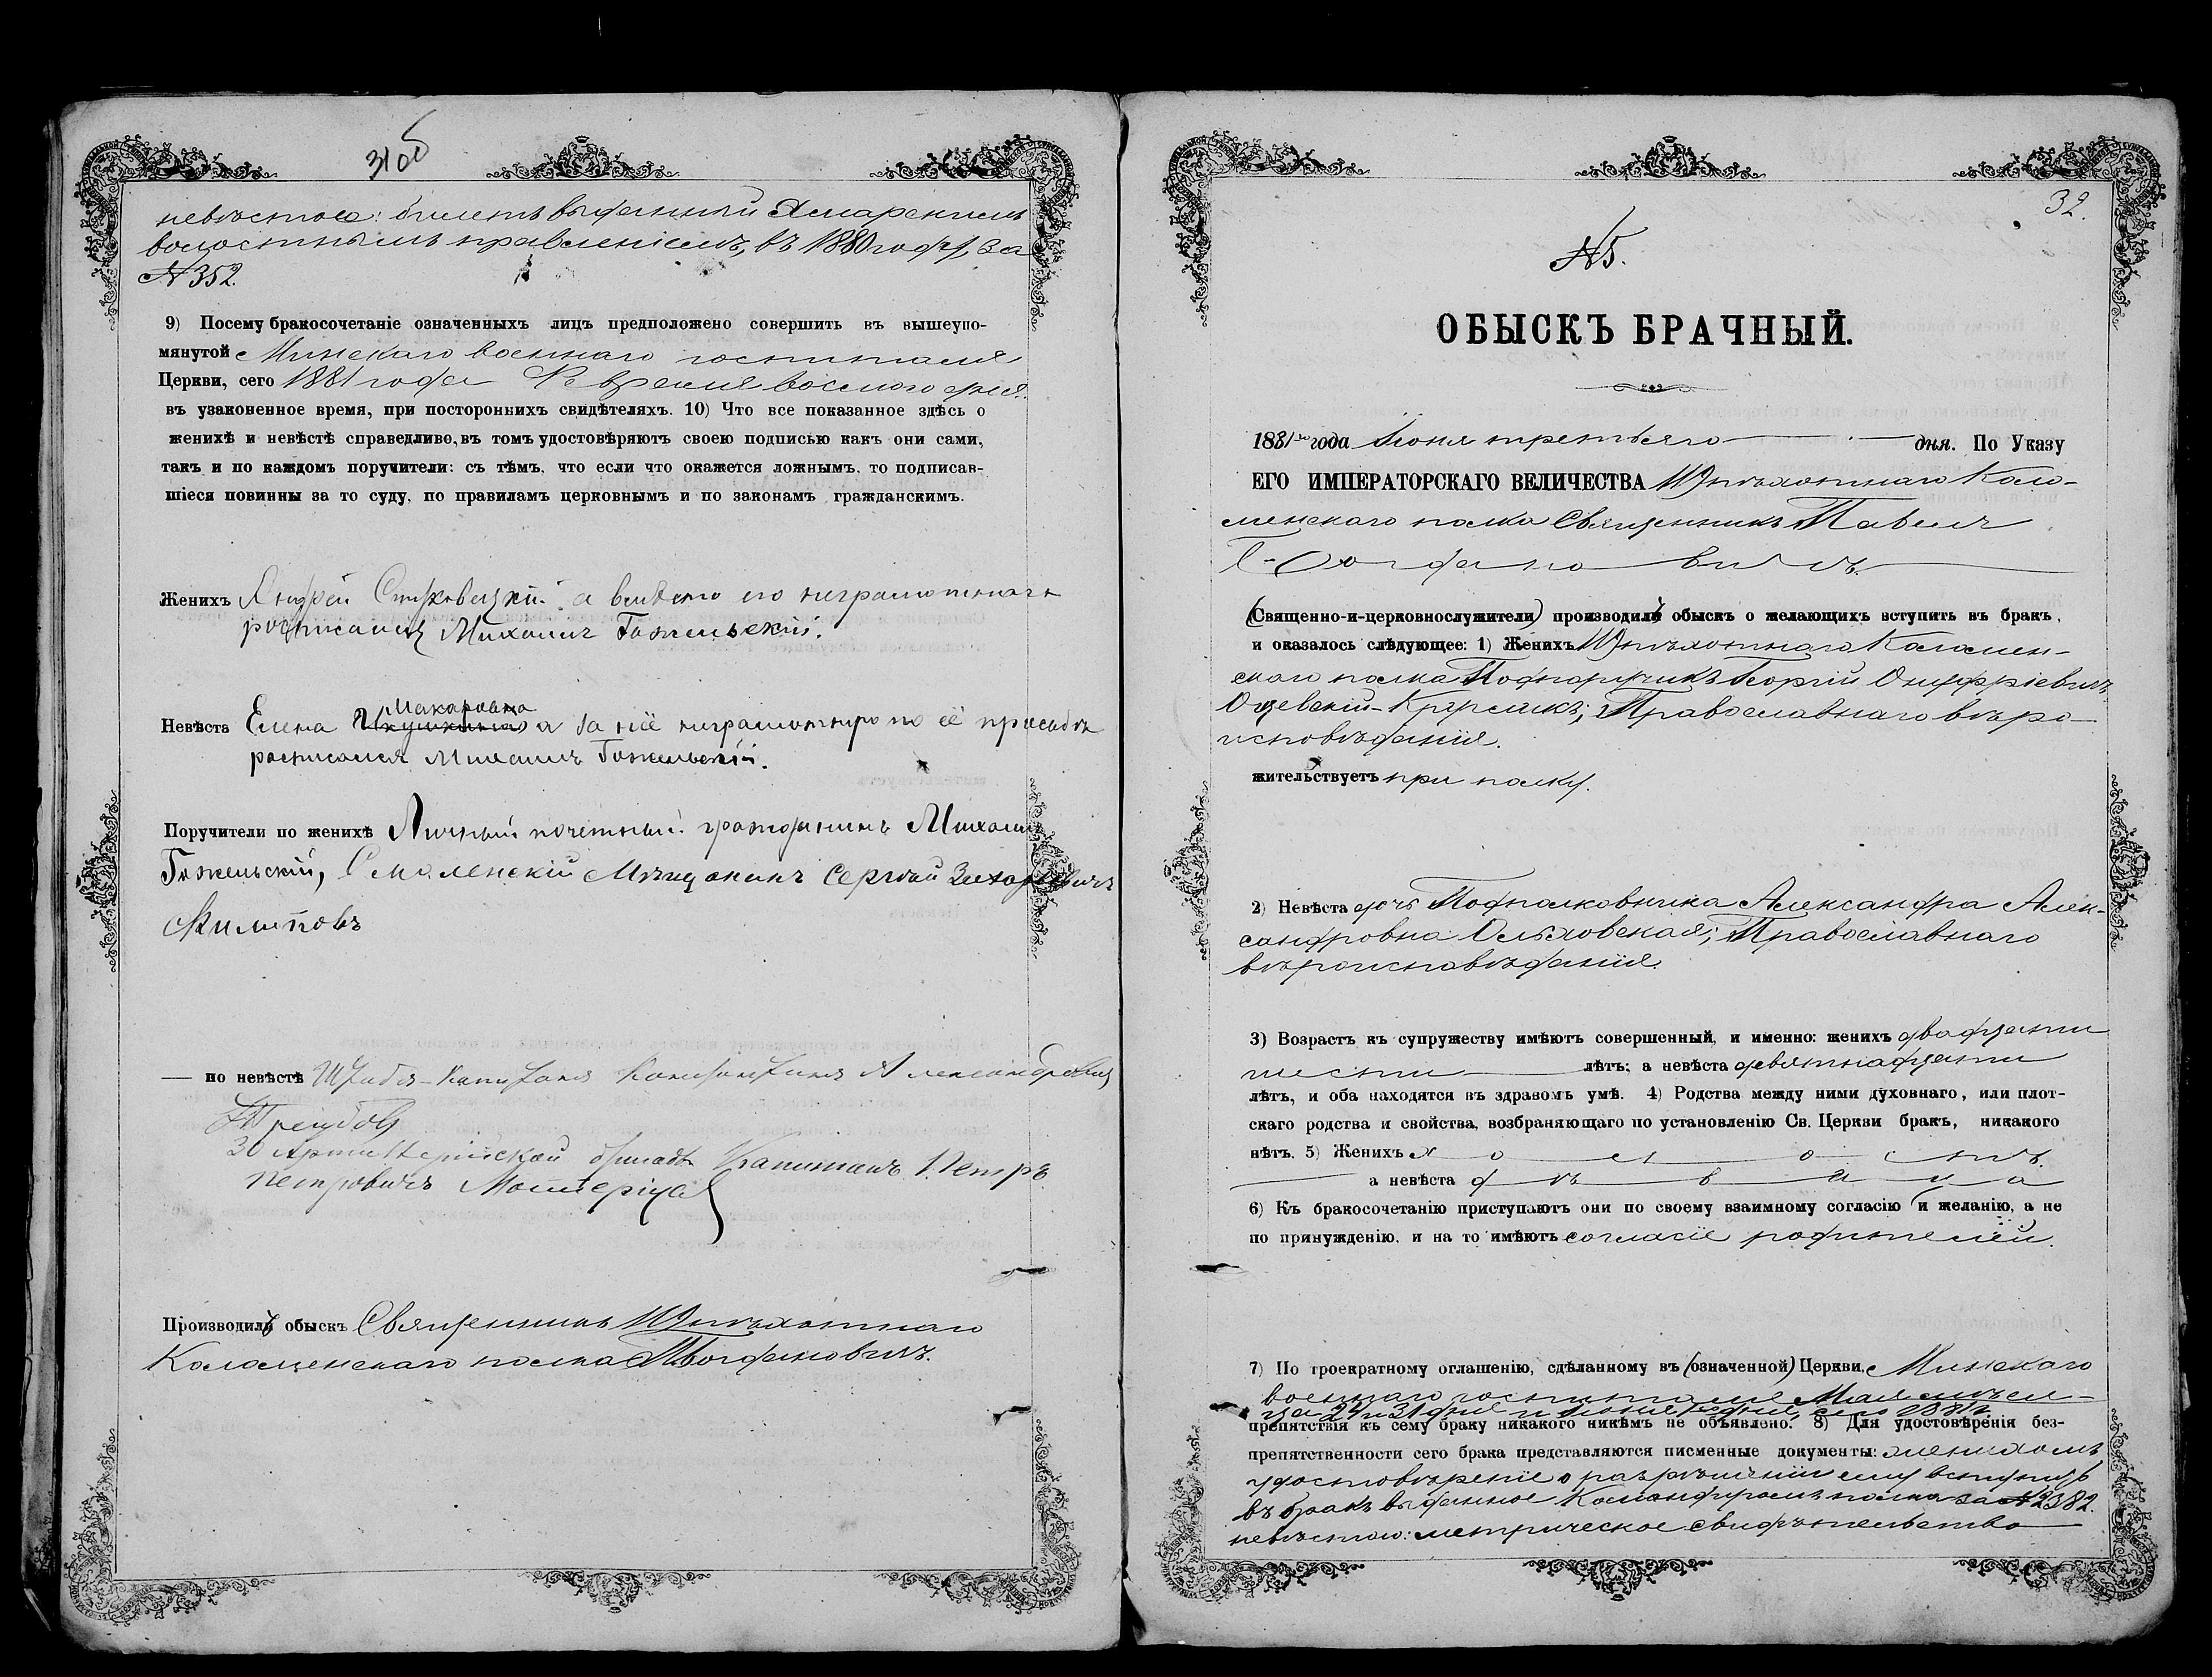 31об
невѣстою: билетъ выданный
волостнымъ правленіемъ, въ 1880 году, за
№ 352.
9) Посему бракосочетаніе означенныхъ лицъ предположено совершить въ вышеупо-
мянутой Минскаго военнаго госпиталя
Церкви, сего 1881 года Февраля восмого дня.
въ узаконенное время, при постороннихъ свидѣтеляхъ. 10) Что все показанное здѣсь о
женихѣ и невѣстѣ справедливо, въ томъ удостовѣряютъ своею подписью какъ они сами,
такъ и по каждомъ поручители: съ тѣмъ, что если что окажется ложнымъ, то подписав-
шіеся повинны за то суду, по правиламъ церковнымъ и по законамъ гражданскимъ.
Женихъ Андрей а вмѣсто его неграмотнаго
росписался Михаилъ Гожельскій.
Макаровна
Невѣста Елена а за неё неграмотную по её просьбѣ
росписался Михаилъ Гожельскій.
Поручители по женихѣ Личный почетный гражданинъ Михаилъ
Гожельскій, Смоленскій Мѣщанинъ Сергѣй Захаровичъ
Филиповъ
— по невѣстѣ Штабсъ-Капитанъ Константинъ Александровичъ
30 Артиллерійской бригады Капитанъ Петръ
Петровичъ
Производилъ обыскъ Священникъ Пѣхотнаго
Коломенскаго полка П Богдановичъ.
32.
№ 5.
ОБЫСКЪ БРАЧНЫЙ.
1881го года Іюня третьяго дня. По Указу
ЕГО ИМПЕРАТОРСКАГО ВЕЛИЧЕСТВА Пѣхотнаго Коло-
менскаго полка Священникъ Павелъ
Богдановичъ.
(Священно-и-церковнослужители) производилъ обыскъ о желающихъ вступить въ бракъ,
и оказалось слѣдующее: 1) Женихъ Пѣхотнаго Коломен-
скаго полка Подпоручикъ Георгій Онуфріевичъ
Православнаго вѣро-
исповѣданія.
жительствуетъ при полку.
2) Невѣста дочь Подполковника Александра Алек-
сандровна Ольховская; Православнаго
вѣроисповѣданія.
3) Возрастъ къ супружеству имѣютъ совершенный, и именно: женихъ двадцати
шести лѣтъ; а невѣста девятнадцати
лѣтъ, и оба находятся въ здравомъ умѣ. 4) Родства между ними духовнаго, или плот-
скаго родства и свойства, возбраняющаго по установленію Св. Церкви бракъ, никакого
нѣтъ. 5) Женихъ холостъ.
а невѣста дѣвица
6) Къ бракосочетанію приступаютъ они по своему взаимному согласію и желанію, а не
по принужденію, и на то имѣютъ согласіе родителей.
7) По троекратному оглашенію, сдѣланному въ (означенной) Церкви, Минскаго
военнаго госпиталя Мая мѣся-
ца 24 и 31 дня и Іюня сего 1881 г.
препятствія къ сему браку никакого никѣмъ не объявлено. 8) Для удостовѣренія без-
препятственности сего брака представляются писменные документы: женихомъ
удостовѣреніе о разрѣшеніи ему вступить
въ бракъ выданное Командиромъ полка за № 2382.
невѣстою: метрическое свидѣтельство